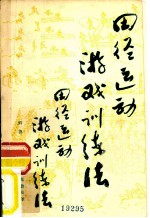 田径运动
游戏训练法
田径运动
游戏训练法
19295